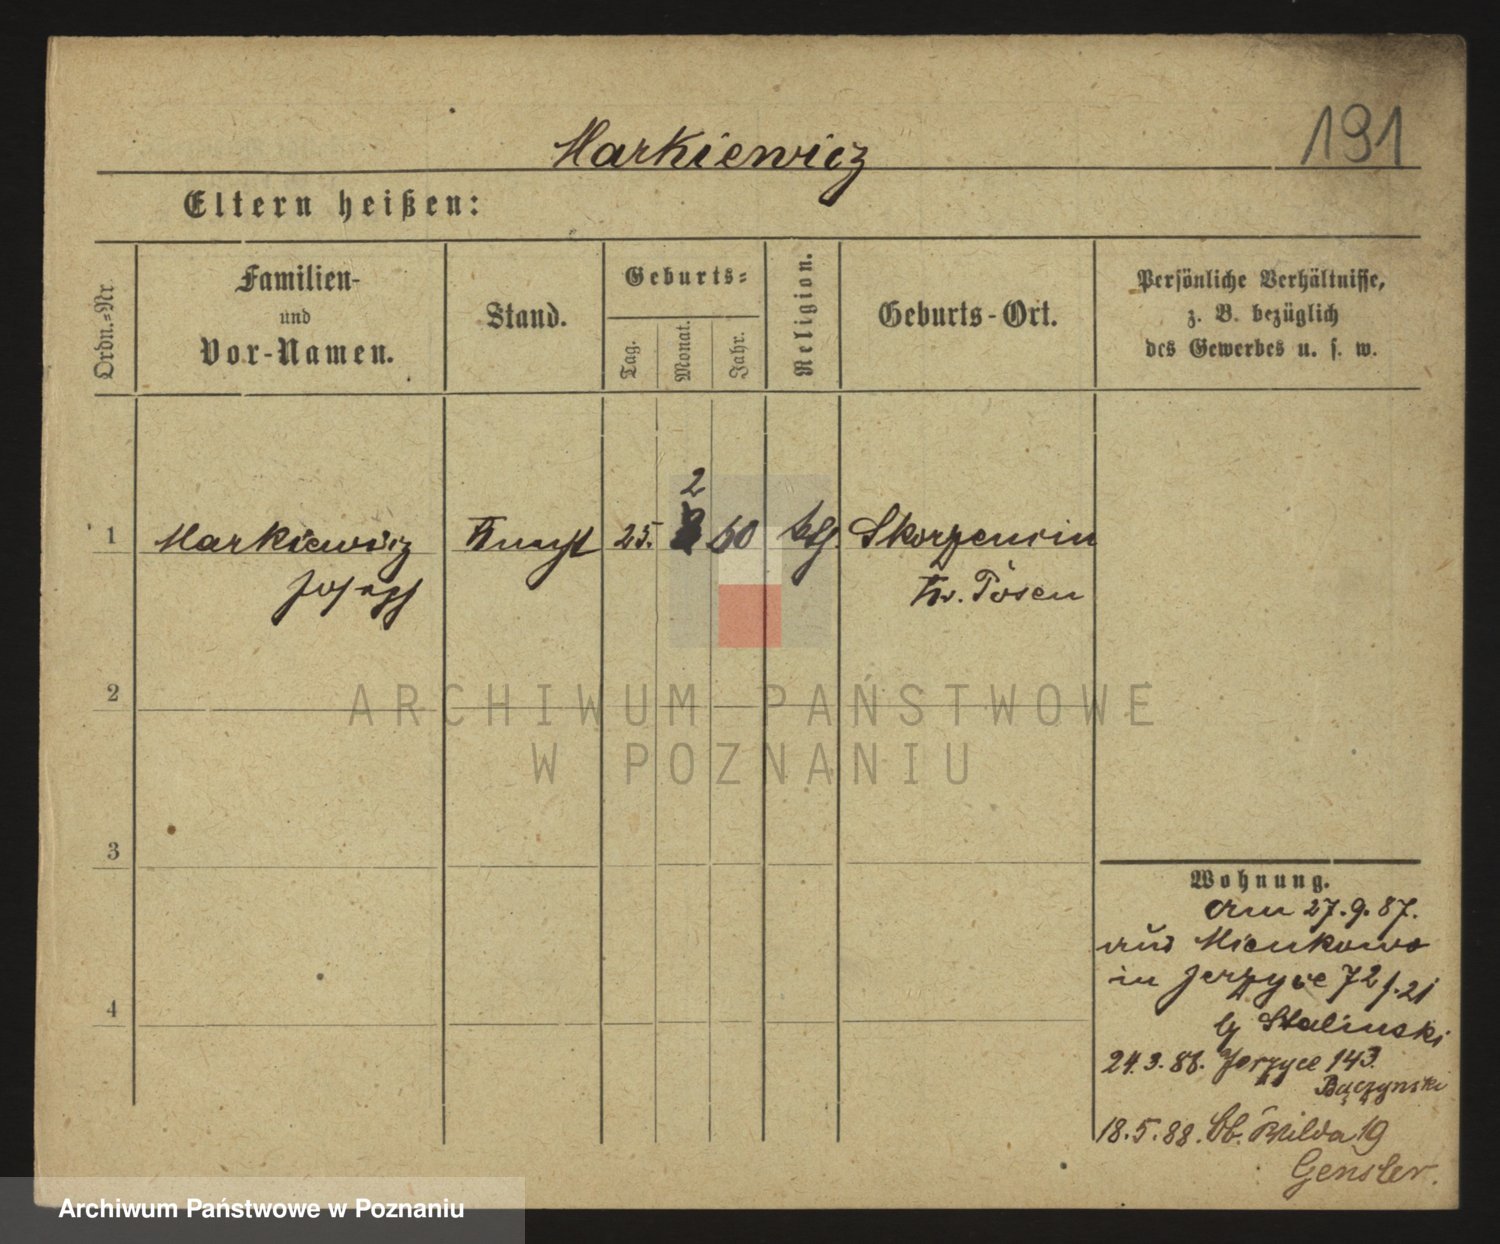 191
Markiewicz
Eltern heißen:
Ordn.-Nr.
Familien-
und
Vor-Namen.
Stand.
Geburts-
Tag.
Monat.
Jahr.
Religion.
Geburts-Ort.
Persönliche Verhältnisse,
z. B. bezüglich
des Gewerbes u. s. w.
2
1 Markiewicz Knecht 25. 60 ktf.
Joseph Kr. Posen
2
3
4
Wohnung.
am 27.9.87.
aus Mienkowo
in Jerzyce 72
Stalinski
24.3.88. Jerzyce 143
Bączynski
18.5.88. Ob. Wilda 19
Gensler.
ARCHIWUM PAŃSTWOWE
W POZNANIU
Archiwum Państwowe w Poznaniu